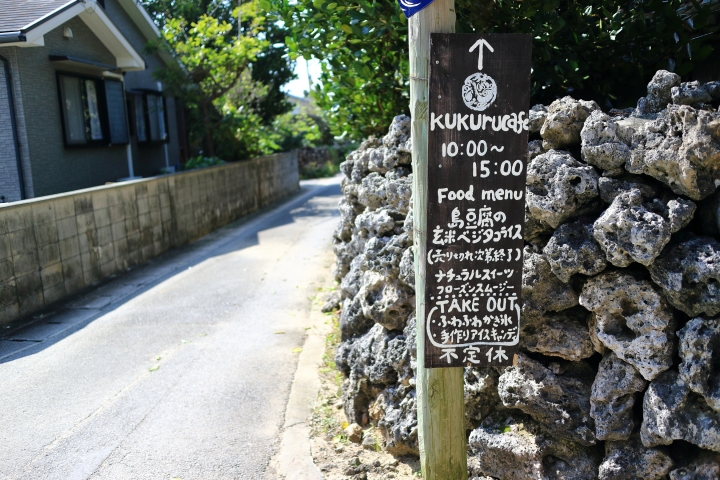 ↑
KUKUruCafe
10:00～
15:00
Food menu
島豆腐の
玄米ベジタコライス
(売りきれ次第終了)
ナチュラルスイーツ
フローズンスムージー
TAKE OUT
ふわふわかき氷
手作りアイスキャンディ
不定休